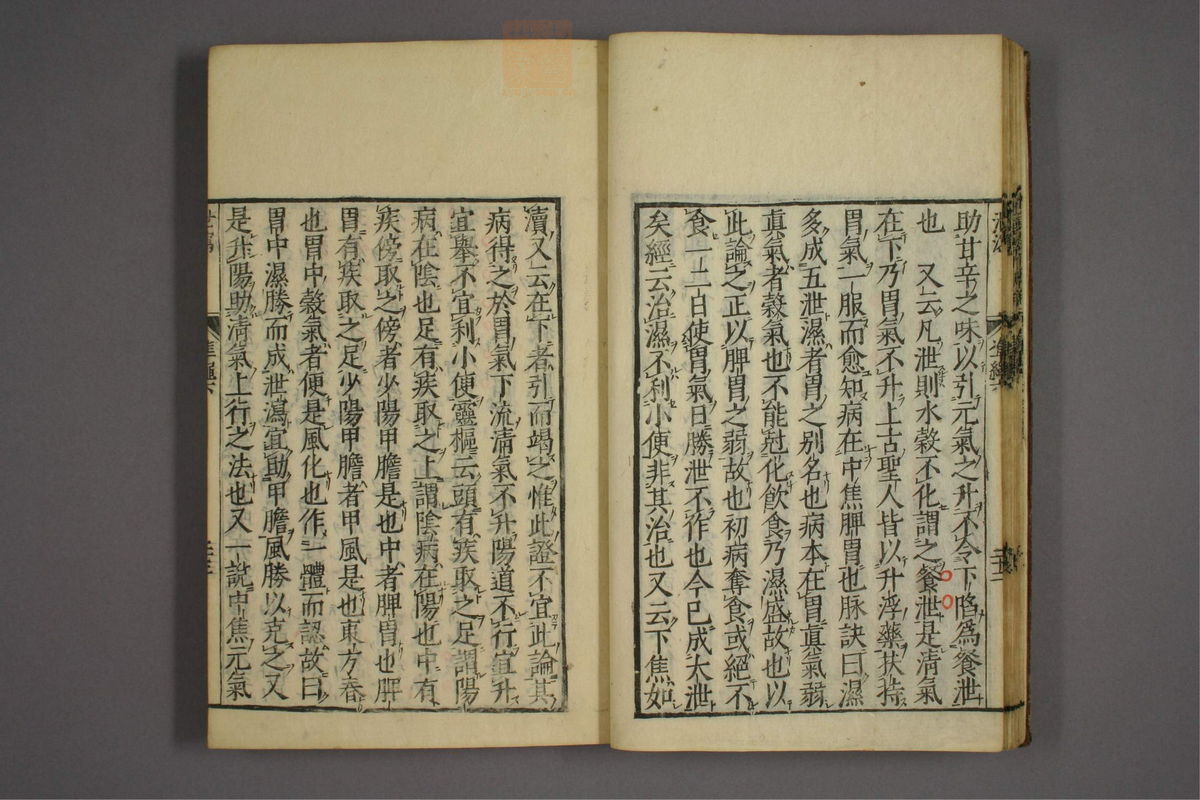 助甘辛之味以引元氣之升不令下陷爲飧泄
也　又云凡泄則水穀不化謂之飧泄是清氣
在下乃胃氣不升上古聖人皆以升浮藥扶持
胃氣一服而愈知病在中焦脾胃也脉訣曰濕
多成五泄濕者胃之别名也病本在胃眞氣弱
眞氣者穀氣也不能尅化飲食乃濕盛故也以
此論之正以脾胃之弱故也初病奪食或絕不
食一二日使胃氣日勝泄不作也今已成大泄
矣經云治濕不利小便非其治也又云下焦如
瀆又云在下者引而竭之惟此證不宜此論其
病得之於胃氣下流清氣不升陽道不行宜升
宜舉不宜利小便靈樞云頭有疾取之足謂陽
病在陰也足有疾取之上謂陰病在陽也中有
疾傍取之傍者少陽甲膽是也中者脾胃也脾
胃有疾取之足少陽甲膽者甲風是也東方春
也胃中穀氣者便是風化也作一體而認故曰
胃中濕勝而成泄瀉宜助甲膽風勝以克之又
是升陽助清氣上行之法也又一說中焦元氣